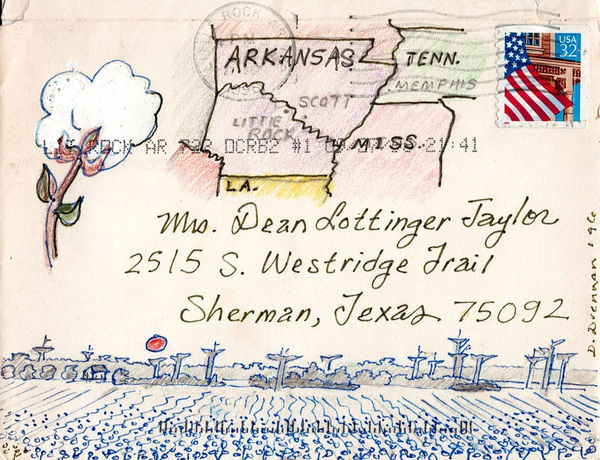 ROCK
ARKANSAS
TENN.
MEMPHIS
SCOTT
LITTLE
ROCK
MISS.
LA.
USA
32
ROCK AR 722 OCRB2 #1 21:41
Mrs. Dean Lottinger Taylor
2515 S. Westridge Trail
Sherman, Texas 75092
D. Drennan '96